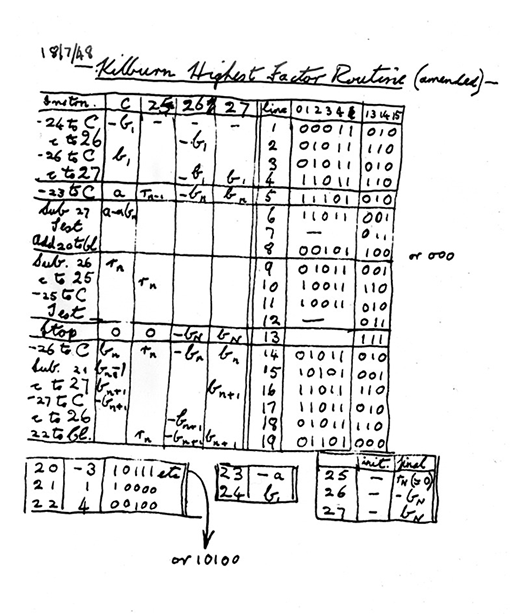 18/7/48
Kilburn Highest Factor Routine (amended)—
Instn. C 25 26 27 line 0 1 2 3 4 13 14 15
-24 to C -b₁ — — — 1 00011 010
c to 26 -b₁ 2 01011 110
-26 to C b₁ 3 01011 010
c to 27 -b₁ b₁ 4 11011 110
-23 to C a rₙ₋₁ -bₙ bₙ 5 11101 010
Sub 27 a-bₙ 6 11011 001
Test 7 — 011
Add 20 to Cl. 8 00101 100 or 000
Sub. 26 rₙ 9 01011 001
c to 25 rₙ 10 10011 110
-25 to C 11 10011 010
Test 12 — 011
Stop 0 0 -b_N b_N 13 111
-26 to C bₙ rₙ -bₙ bₙ 14 01011 010
Sub. 21 bₙ₊₁ 15 10101 001
c to 27 bₙ₊₁ bₙ₊₁ 16 11011 110
-27 to C -bₙ₊₁ 17 11011 010
c to 26 -bₙ₊₁ 18 01011 110
22 to Cl. rₙ -bₙ₊₁ bₙ₊₁ 19 01101 000
20 -3 10111 etc
21 1 10000
22 4 00100
or 10100
23 -a
24 b₁
init. final
25 — r_N (=0)
26 — -b_N
27 — b_N